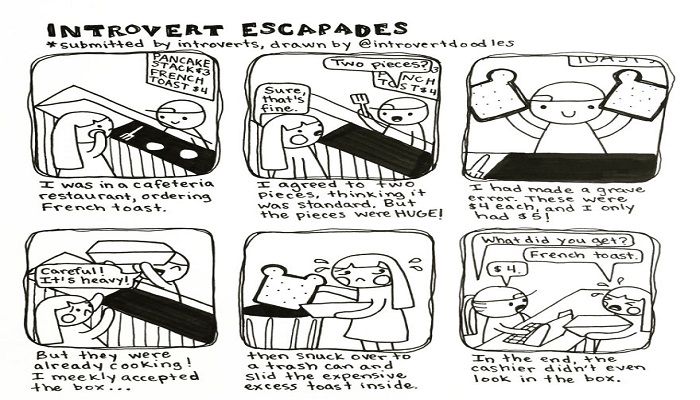 INTROVERT ESCAPADES
*submitted by introverts, drawn by @introvertdoodles
PANCAKE
STACK $3
FRENCH
TOAST $4
I was in a cafeteria
restaurant, ordering
French toast.
Two pieces?
NCH
TOAST $4
Sure,
that's
fine.
I agreed to two
pieces, thinking it
was standard. But
the pieces were HUGE!
I had made a grave
error. These were
$4 each, and I only
had $5!
Careful!
It's heavy!
But they were
already cooking!
I meekly accepted
the box...
then snuck over to
a trash can and
slid the expensive
excess toast inside.
What did you get?
French toast.
$4.
In the end, the
cashier didn't even
look in the box.